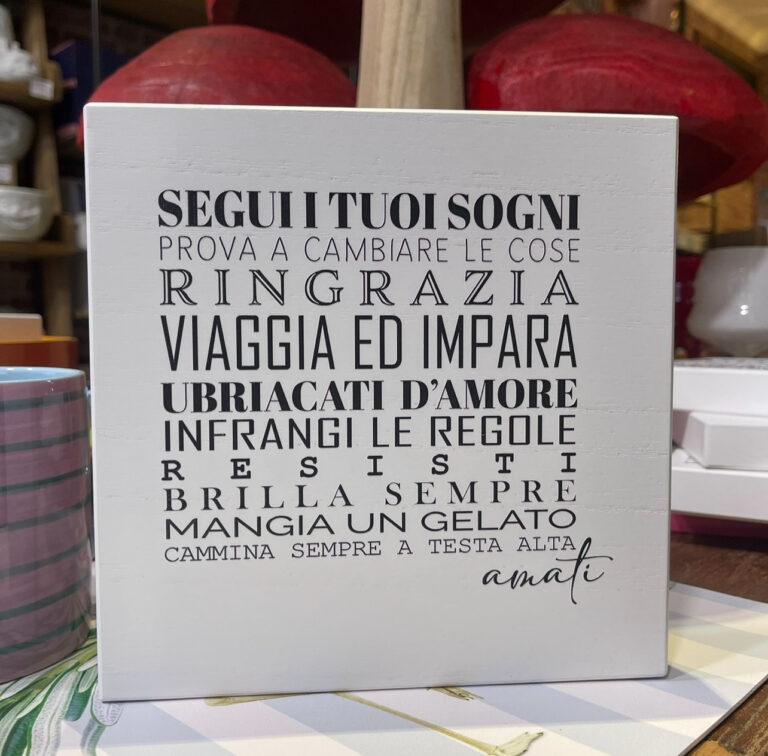 SEGUI I TUOI SOGNI
PROVA A CAMBIARE LE COSE
RINGRAZIA
VIAGGIA ED IMPARA
UBRIACATI D'AMORE
INFRANGI LE REGOLE
RESISTI
BRILLA SEMPRE
MANGIA UN GELATO
CAMMINA SEMPRE A TESTA ALTA
amati